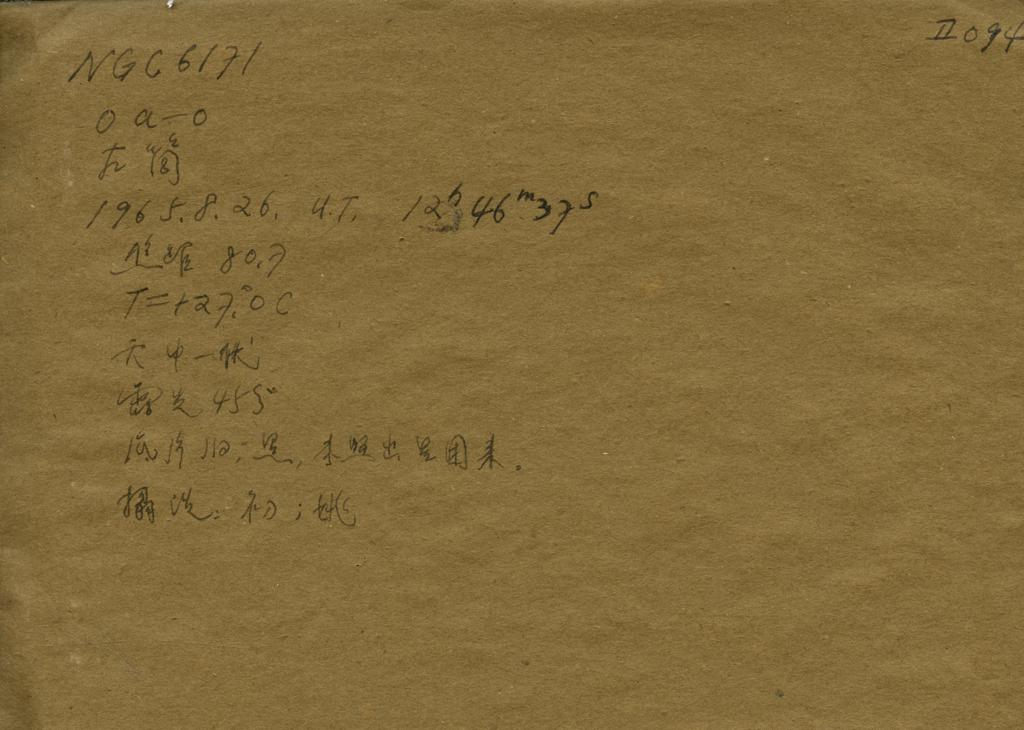 II094
NGC6171
Oa-O
左筒
1965.8.26. U.T. 12h46m37s
焦距 80.7
T=+27.°0C
露光 45s
底片旧;黑,未照出星团来。
摄洗:初;姚